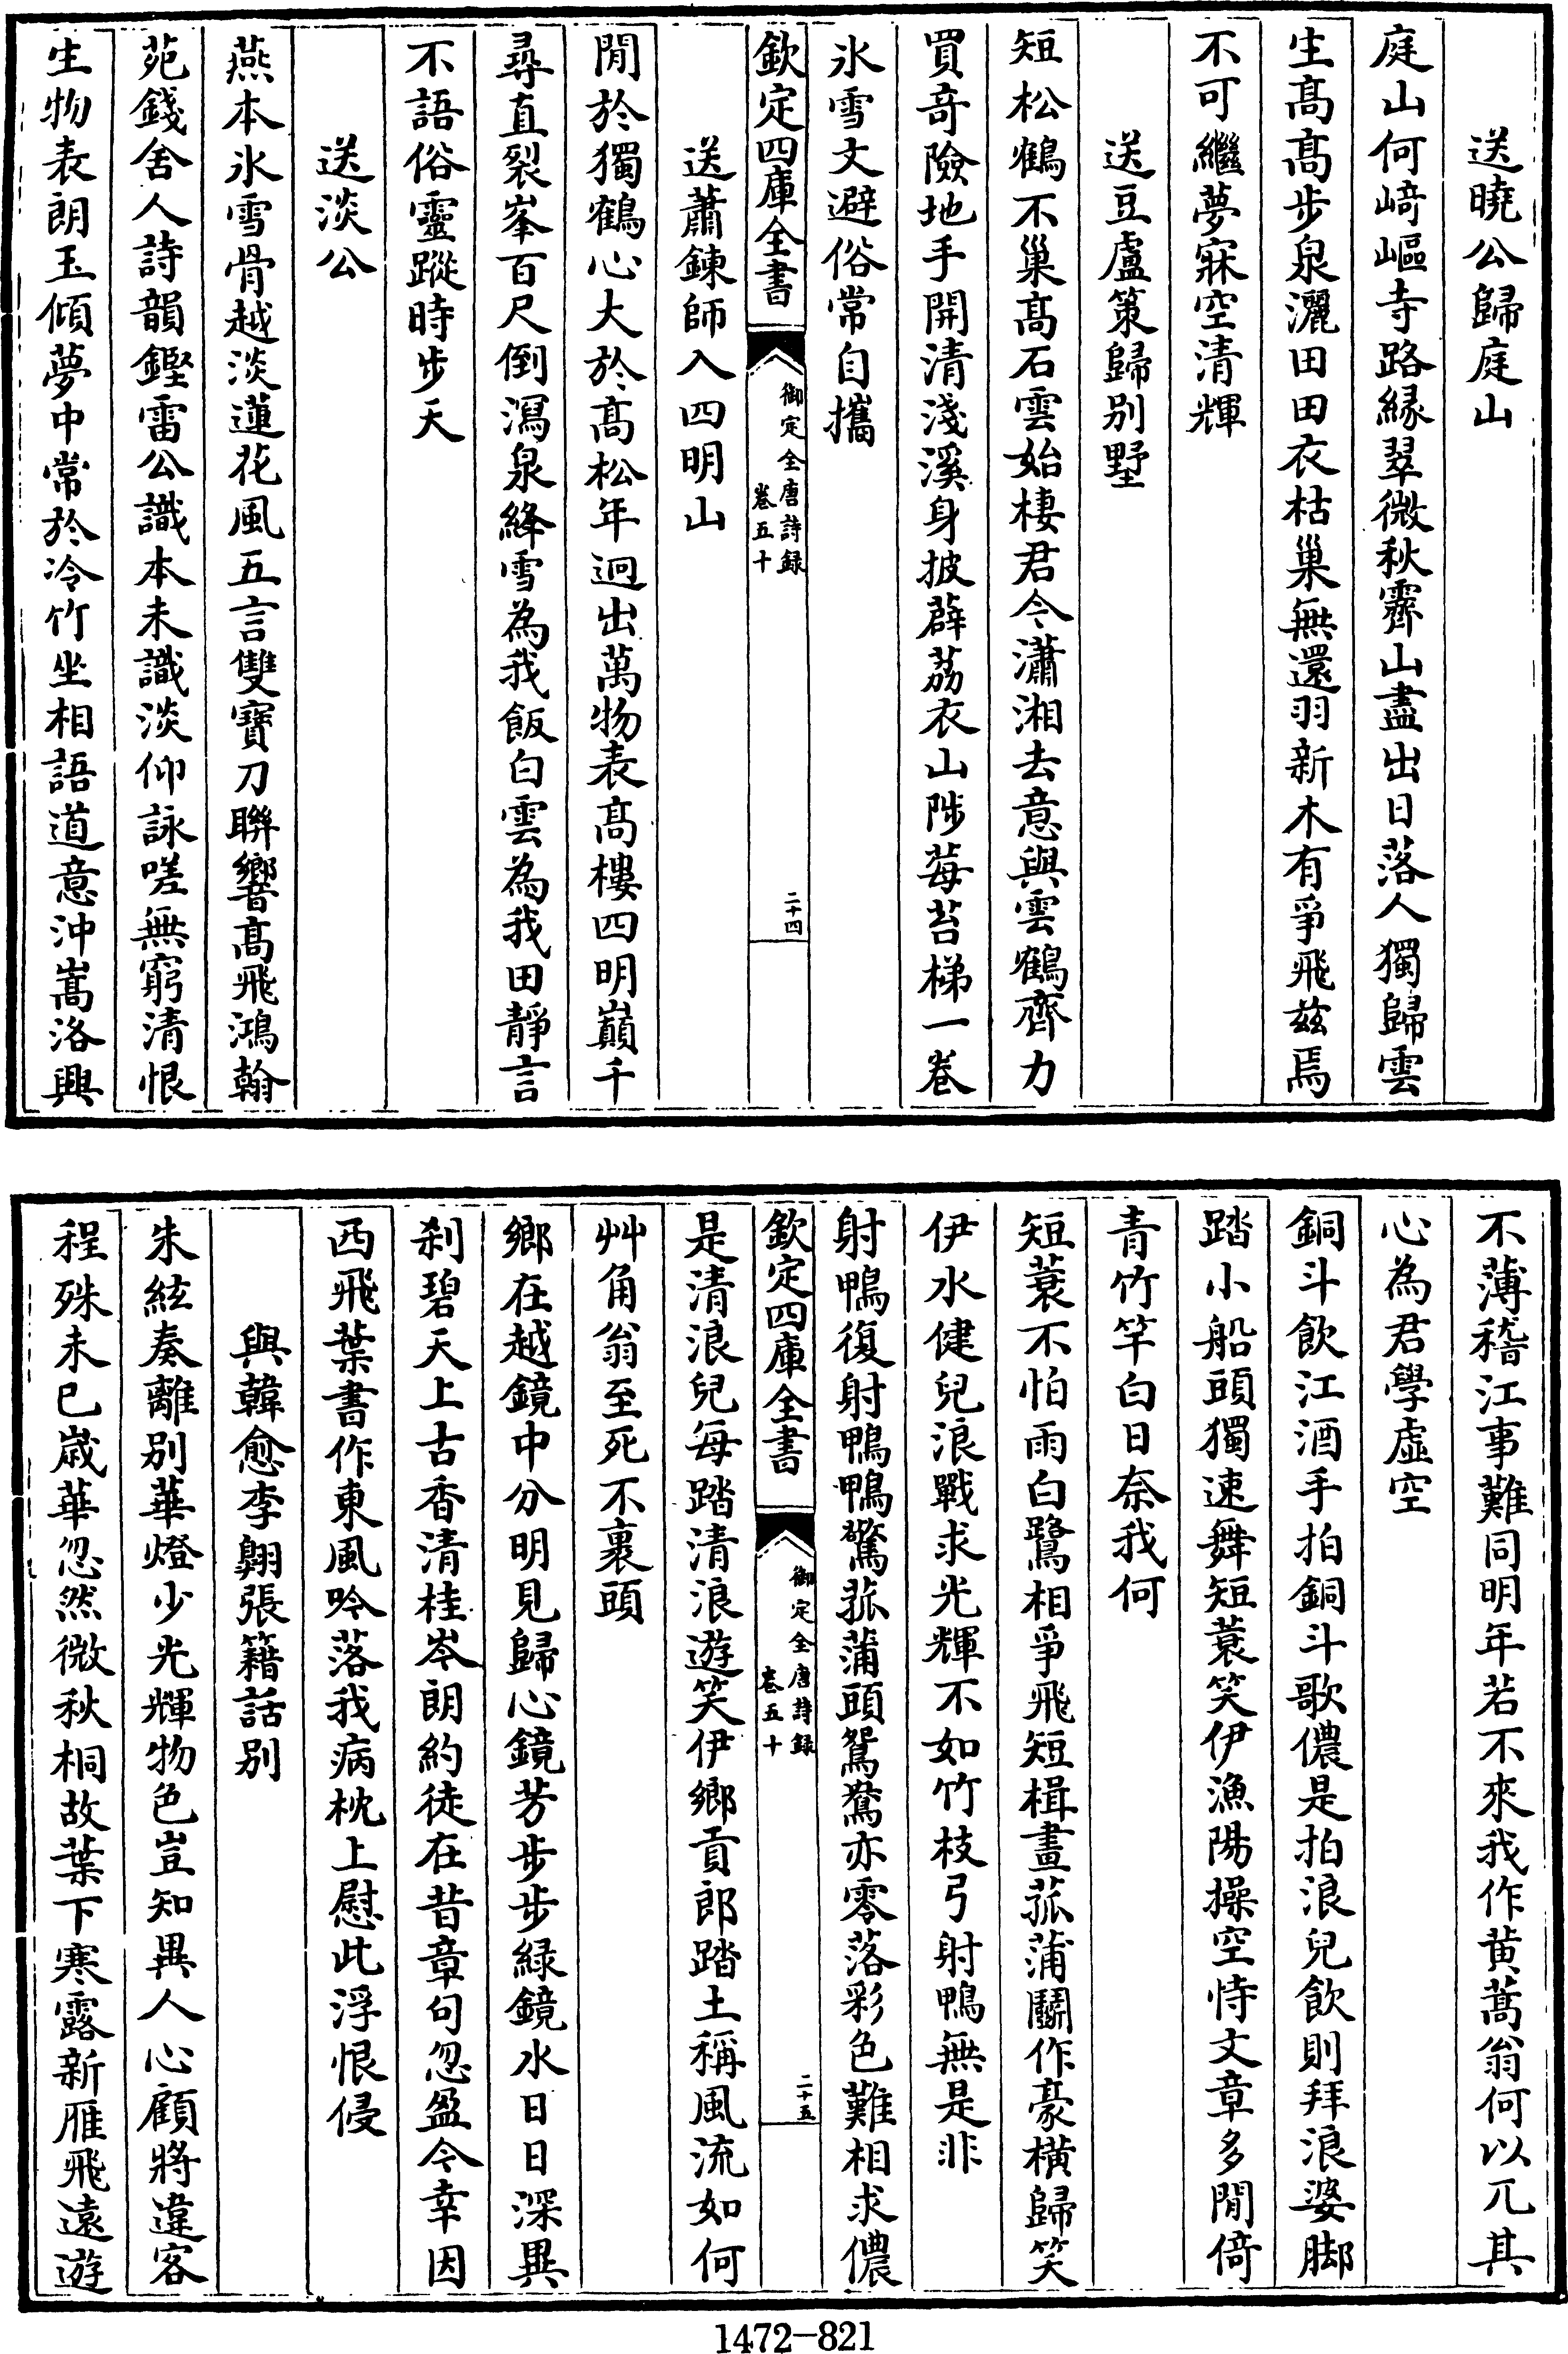 送曉公歸庭山
庭山何﨑嶇寺路緣翠微秋霽山盡出日落人獨歸雲
生髙髙步泉灑田田衣枯巢無還羽新木有爭飛兹焉
不可繼夢寐空清輝
送豆盧策歸别墅
短松鶴不巢髙石雲始棲君今瀟湘去意與雲鶴齊力
買竒險地手開清淺溪身披薜荔衣山陟莓苔梯一卷
氷雪文避俗常自攜
欽定四庫全書
御定全唐詩録
卷五十
二十四
送蕭鍊師入四明山
閒於獨鶴心大於髙松年迥出萬物表髙樓四明巔千
尋直裂峯百尺倒瀉泉絳雪為我飯白雲為我田靜言
不語俗靈蹤時步天
送淡公
燕本氷雪骨越淡蓮花風五言雙寶刀聯響髙飛鴻翰
苑錢舍人詩韻鏗雷公識本未識淡仰詠嗟無窮清恨
生物表朗玉傾夢中常於冷竹坐相語道意沖嵩洛興
不薄稽江事難同明年若不來我作黄蒿翁何以兀其
心為君學虛空
銅斗飲江酒手拍銅斗歌儂是拍浪兒飲則拜浪婆脚
踏小船頭獨速舞短蓑笑伊漁陽操空恃文章多閒倚
青竹竿白日奈我何
短蓑不怕雨白鷺相爭飛短楫畫菰蒲鬭作豪橫歸笑
伊水健兒浪戰求光輝不如竹枝弓射鴨無是非
射鴨復射鴨鴨驚菰蒲頭鴛鴦亦零落彩色難相求儂
欽定四庫全書
御定全唐詩録
卷五十
二十五
是清浪兒每踏清浪遊笑伊鄉貢郎踏土稱風流如何
艸角翁至死不裹頭
鄉在越鏡中分明見歸心鏡芳步步緑鏡水日日深異
刹碧天上古香清桂岑朗約徒在昔章句忽盈今幸因
西飛葉書作東風吟落我病枕上慰此浮恨侵
與韓愈李翺張籍話别
朱絃奏離别華燈少光輝物色豈知異人心顧將違客
程殊未已嵗華忽然微秋桐故葉下寒露新雁飛遠遊
1472—821